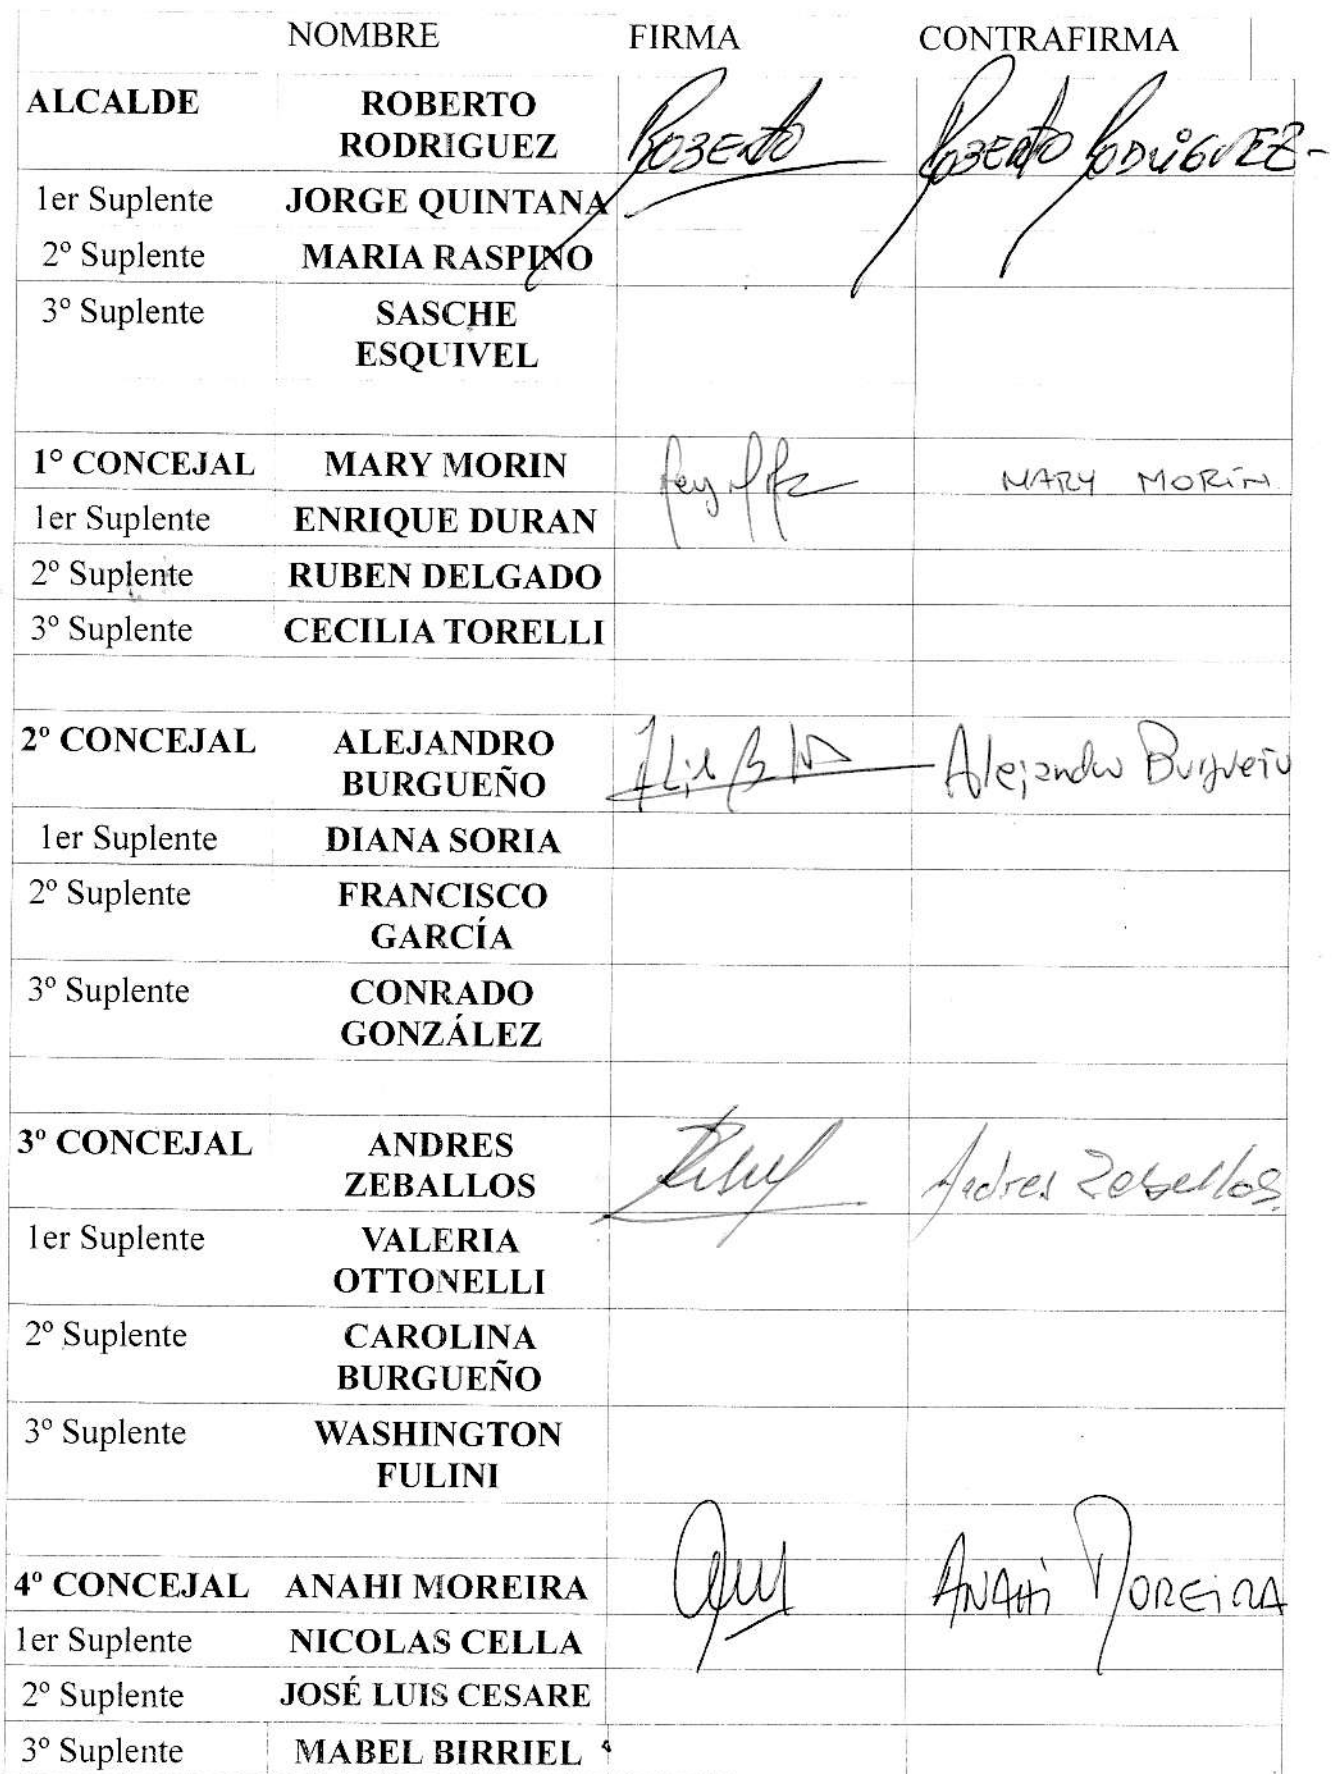 NOMBRE FIRMA CONTRAFIRMA
ALCALDE ROBERTO
RODRIGUEZ ROBERTO ROBERTO RODRIGUEZ-
1er Suplente JORGE QUINTANA
2º Suplente MARIA RASPINO
3º Suplente SASCHE
ESQUIVEL
1º CONCEJAL MARY MORIN MARY MORIN
1er Suplente ENRIQUE DURAN
2º Suplente RUBEN DELGADO
3º Suplente CECILIA TORELLI
2º CONCEJAL ALEJANDRO
BURGUEÑO Alejandro Burgueño
1er Suplente DIANA SORIA
2º Suplente FRANCISCO
GARCÍA
3º Suplente CONRADO
GONZÁLEZ
3º CONCEJAL ANDRES
ZEBALLOS Andres Zeballos
1er Suplente VALERIA
OTTONELLI
2º Suplente CAROLINA
BURGUEÑO
3º Suplente WASHINGTON
FULINI
4º CONCEJAL ANAHI MOREIRA ANAHI MOREIRA
1er Suplente NICOLAS CELLA
2º Suplente JOSÉ LUIS CESARE
3º Suplente MABEL BIRRIEL